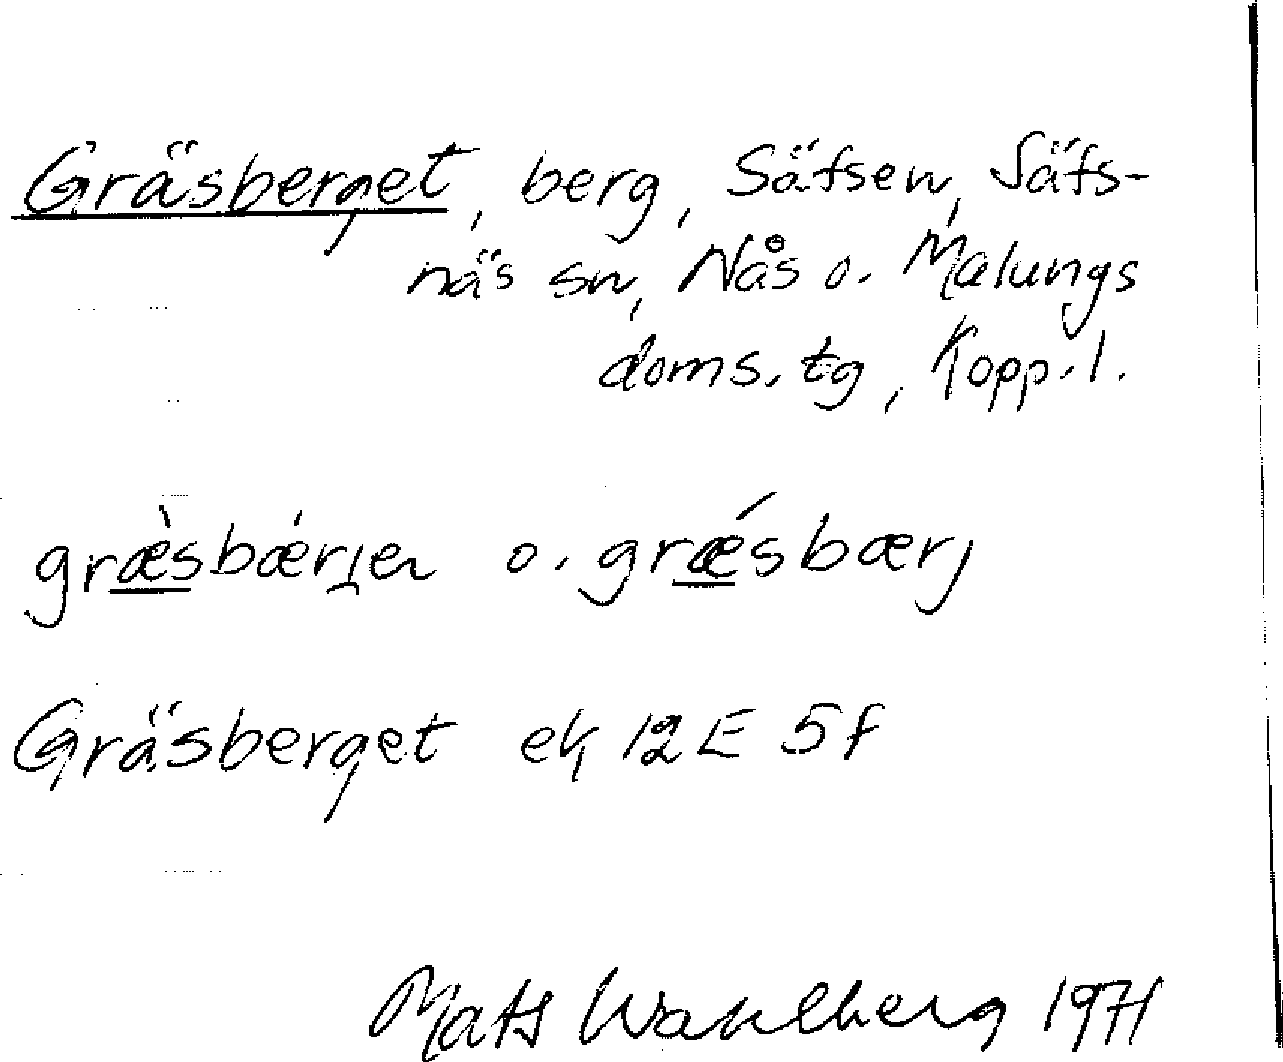 Gräsberget, berg, Säfsen, Säfs-
näs sn, Nås o. Malungs
doms. tg, Kopp. l.
græ̀sbǽrjen o. grǽsbærj
Gräsberget ek 12E 5f
Mats Wahlberg 1971